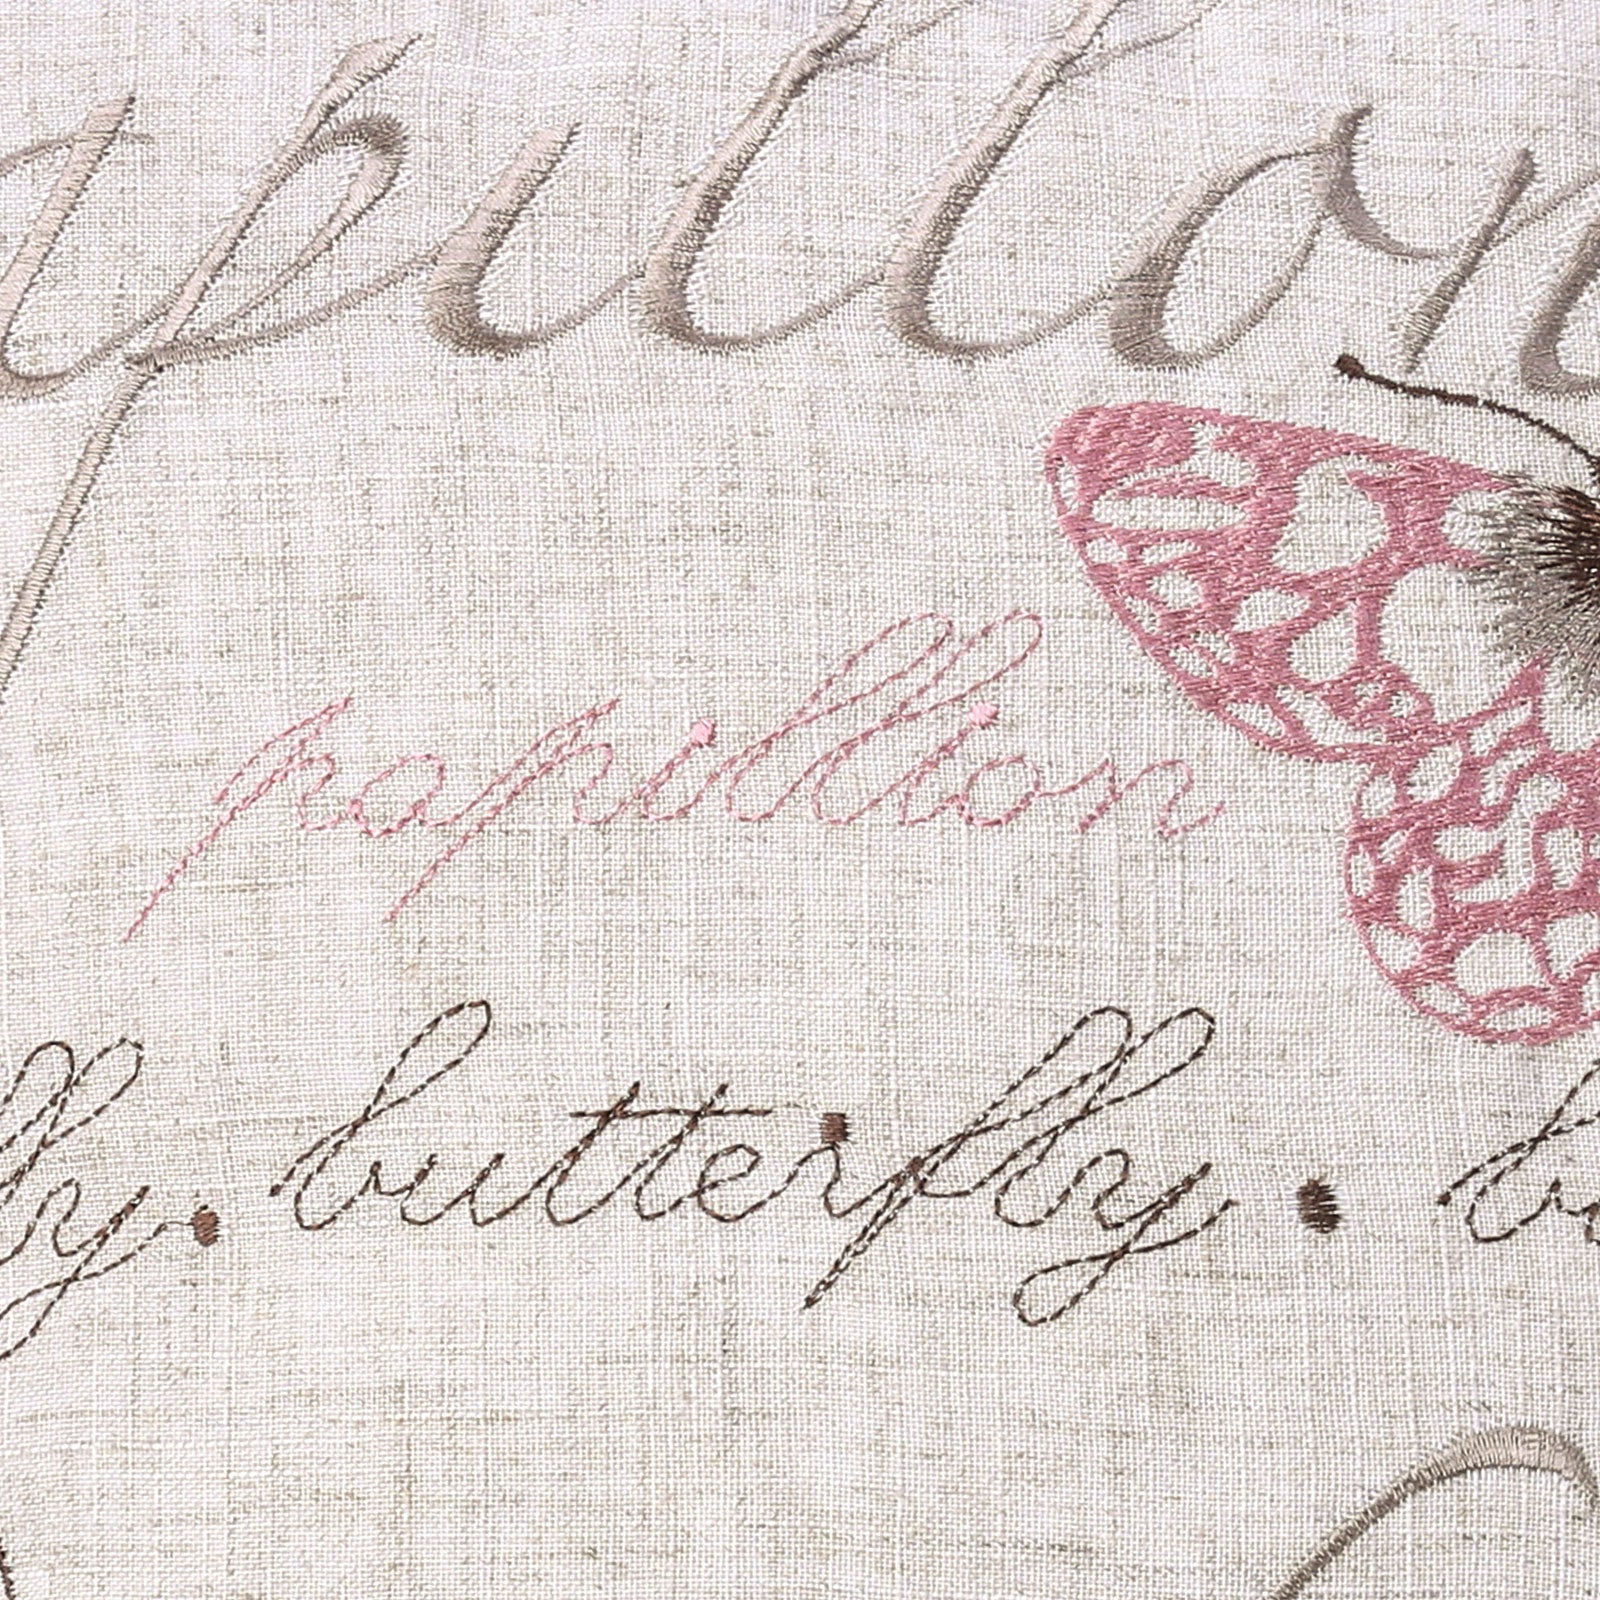 apillon
papillion
ly. butterfly. bu